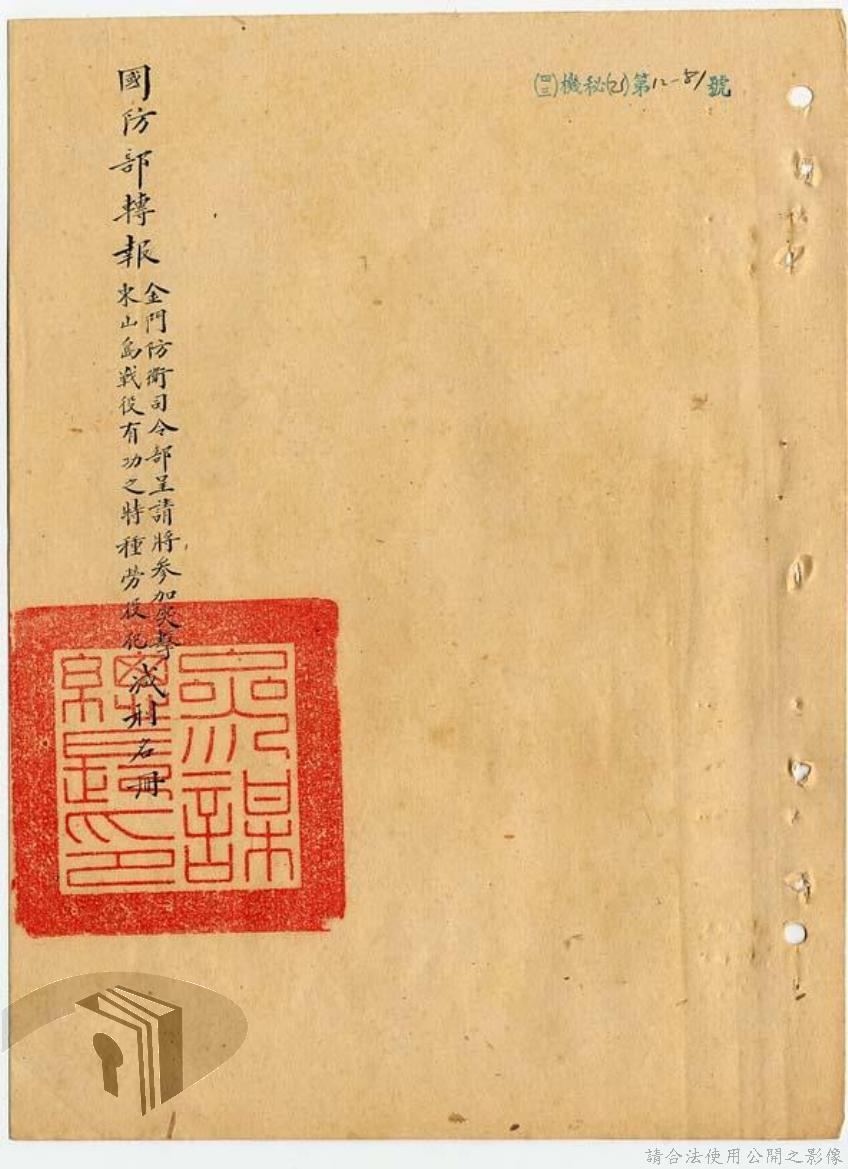 ㈣㈢機秘(乙)第12-81號
國防部轉報
金門防衛司令部呈請將參加突擊
東山島戰役有功之特種勞役犯
減刑名冊
參謀
總長印
請合法使用公開之影像